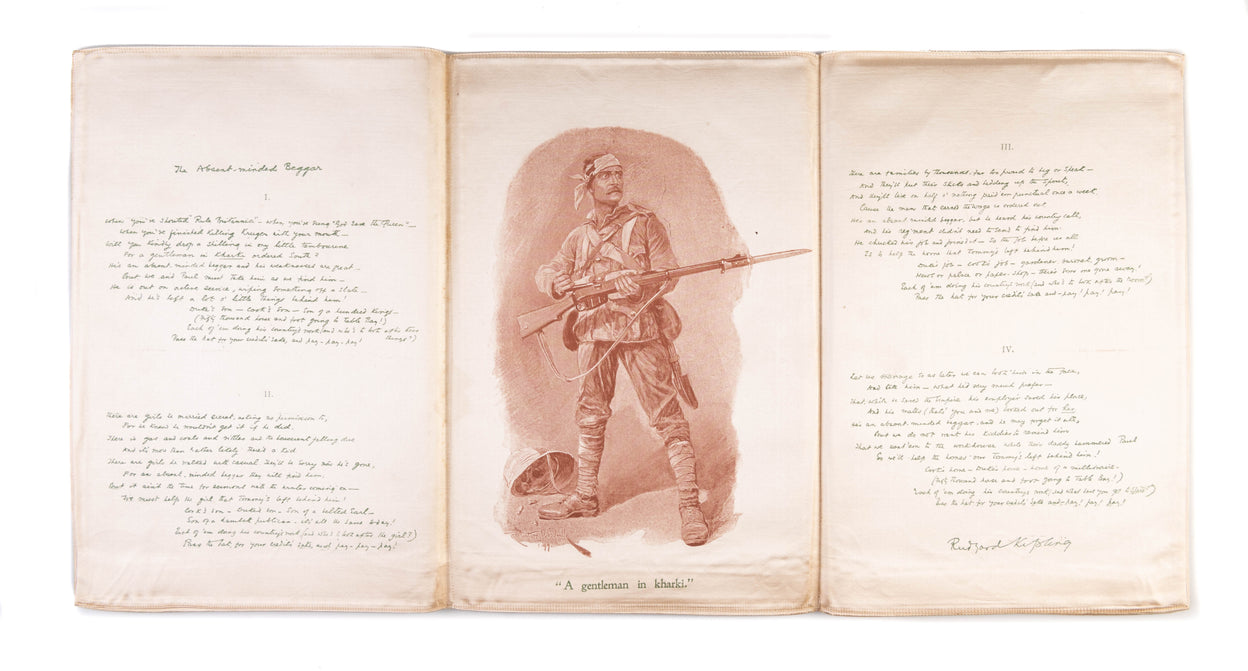 The Absent-minded Beggar
I.
When you've shouted "Rule Britannia" – when you've sung "God save the Queen" –
When you've finished killing Kruger with your mouth –
Will you kindly drop a shilling in my little tambourine
For a gentleman in Kharki ordered South?
He's an absent-minded beggar and his weaknesses are great –
But we and Paul must take him as we find him –
He is out on active service, wiping something off a slate –
And he's left a lot o' little things behind him!
Duke's son – Cook's son – son of a hundred kings –
(Fifty thousand horse and foot going to Table Bay!)
Each of 'em doing his country's work (and who's to look after their things?)
Pass the hat for your credit's sake, and pay – pay – pay!
II.
There are girls he married secret, asking no permission to,
For he knew he wouldn't get it if he did.
There is gas and coals and vittles and the house-rent falling due
And it's more than rather likely there's a kid.
There are girls he walked with casual, they'll be sorry now he's gone,
For an absent-minded beggar they will find him,
But it ain't the time for sermons with the winter coming on –
We must help the girl that Tommy's left behind him!
Cook's son – Duke's son – son of a belted Earl –
Son of a Lambeth publican – it's all the same to-day!
Each of 'em doing his country's work (and who's to look after the girl?)
Pass the hat for your credit's sake, and pay – pay – pay!
"A gentleman in kharki."
III.
There are families by thousands, far too proud to beg or speak –
And they'll put their sticks and bedding up the spout,
And they'll live on half o' nothing paid 'em punctual once a week,
'Cause the man that earned the wage is ordered out.
He's an absent-minded beggar, but he heard his country call,
And his reg'ment didn't need to send to find him:
He chucked his job and joined it – so the job before us all
Is to help the home that Tommy's left behind him!
Duke's job – cook's job – gardener, baronet, groom –
Mews or palace or paper-shop – there's someone gone away!
Each of 'em doing his country's work (and who's to look after the room?)
Pass the hat for your credit's sake and – pay! pay! pay!
IV.
Let us manage so as later we can look him in the face,
And tell him – what he'd very much prefer –
That, while he saved the Empire his employer saved his place,
And his mates (that's you and me) looked out for her.
He's an absent-minded beggar, and he may forget it all,
But we do not want his kiddies to remind him
That we sent 'em to the workhouse while their daddy hammered Paul
So we'll help the homes our Tommy's left behind him!
Cook's home – Duke's home – home of a millionaire –
(Fifty thousand horse and foot going to Table Bay!)
Each of 'em doing his country's work (and what have you got to spare?)
Pass the hat for your credit's sake and – pay! pay! pay!
Rudyard Kipling